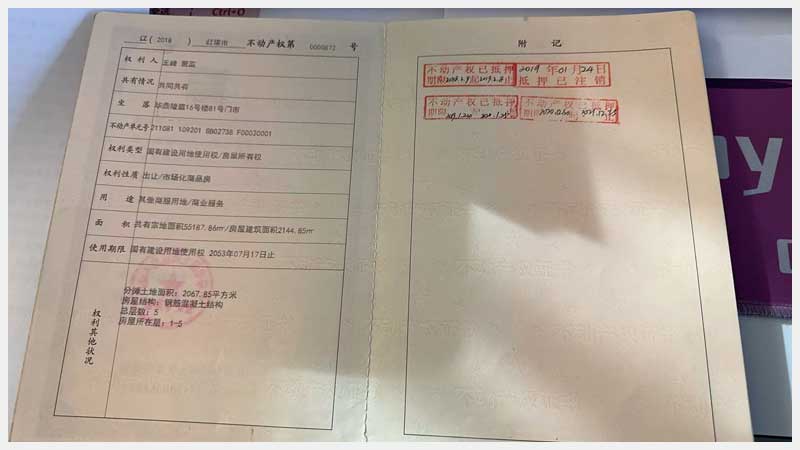 Ctrl+O
辽(2018)灯塔市 不动产权第 0000872 号
权利人 王峰
共有情况 共同共有
坐落 华泰隆震16号楼81号门市
不动产单元号 211081 109201 GB02738 F00020001
权利类型 国有建设用地使用权/房屋所有权
权利性质 出让/市场化商品房
用途 其他商服用地/商业服务
面积 共有宗地面积55187.86㎡/房屋建筑面积2144.85㎡
使用期限 国有建设用地使用权 2053年07月17日止
权利其他状况
分摊土地面积：2067.85平方米
房屋结构：钢筋混凝土结构
总层数：5
房屋所在层：1-5
附记
不动产权已抵押
期限
2019年01月24日
抵押已注销
不动产权已抵押
期限
不动产权已抵押
期限